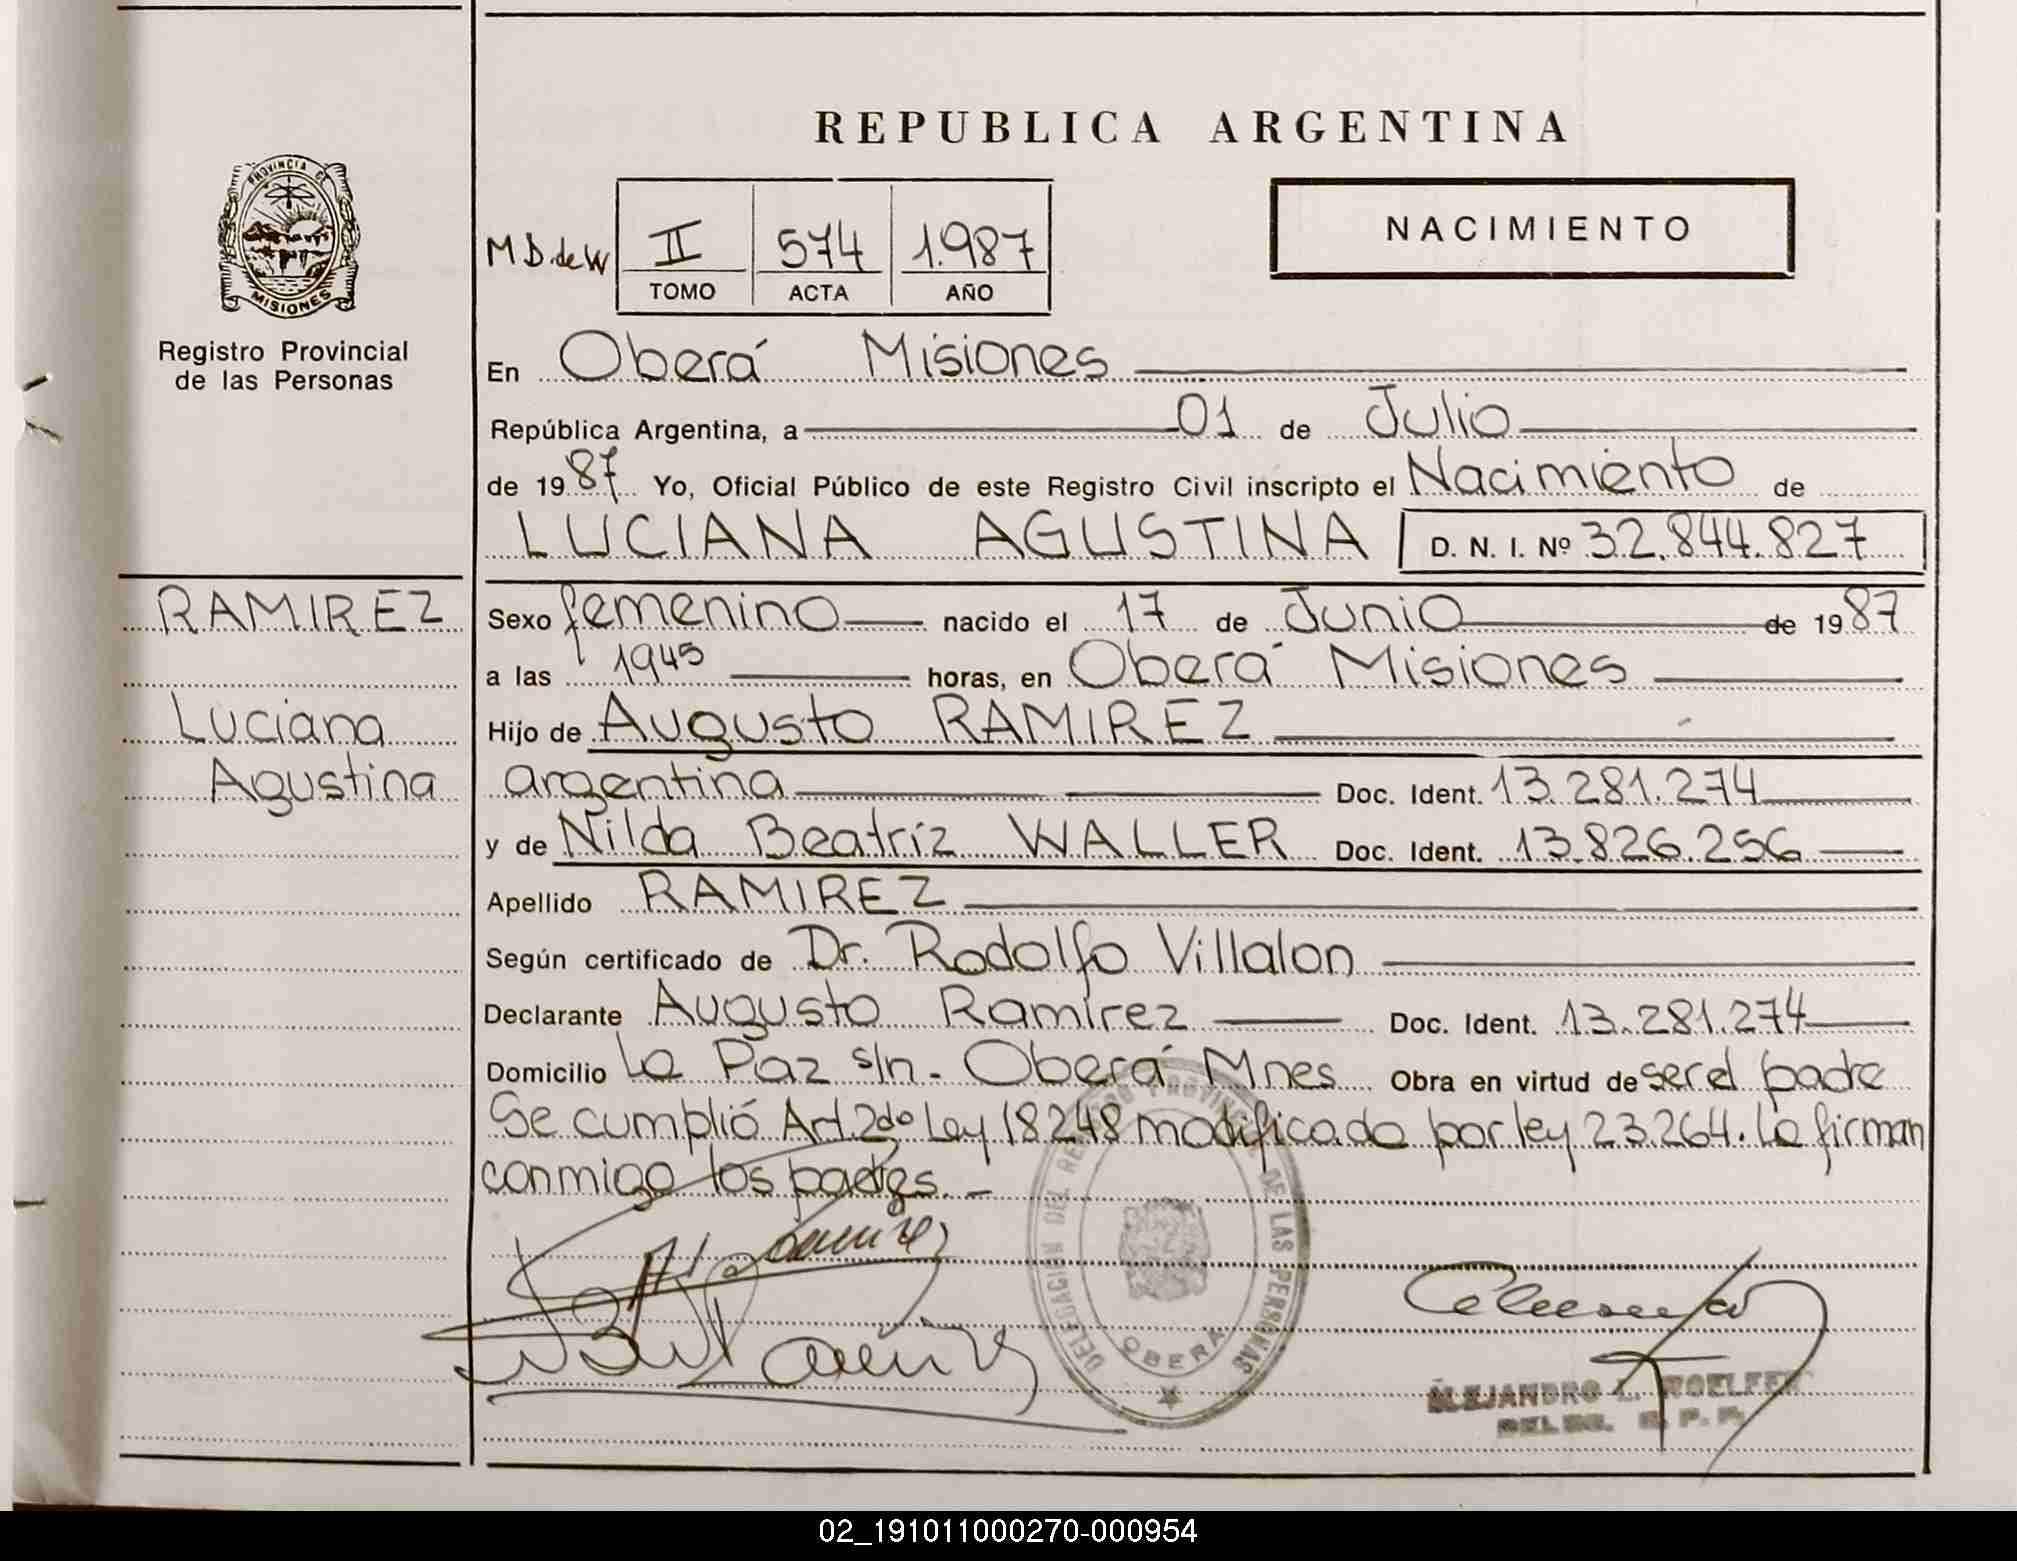 REPUBLICA ARGENTINA
PROVINCIA DE
MISIONES
Registro Provincial
de las Personas
NACIMIENTO
M D de W II 574 1.987
TOMO ACTA AÑO
En Oberá Misiones
República Argentina, a 01 de Julio
de 1987 Yo, Oficial Público de este Registro Civil inscripto el Nacimiento de
LUCIANA AGUSTINA D. N. I. Nº 32.844.827
RAMIREZ
Luciana
Agustina
Sexo femenino nacido el 17 de Junio de 1987
a las 1945 horas, en Oberá Misiones
Hijo de Augusto RAMIREZ
argentina Doc. Ident. 13.281.274
y de Nilda Beatríz WALLER Doc. Ident. 13.826.256
Apellido RAMIREZ
Según certificado de Dr. Rodolfo Villalon
Declarante Augusto Ramírez Doc. Ident. 13.281.274
Domicilio La Paz s/n. Oberá Mnes Obra en virtud de ser el padre
Se cumplió Art. 2do Ley 18248 modificado por ley 23.264. La firman
conmigo los padres.-
DELEGACION DEL REGISTRO PROVINCIAL DE LAS PERSONAS
OBERA
ALEJANDRO L. WOELFER
02_191011000270-000954